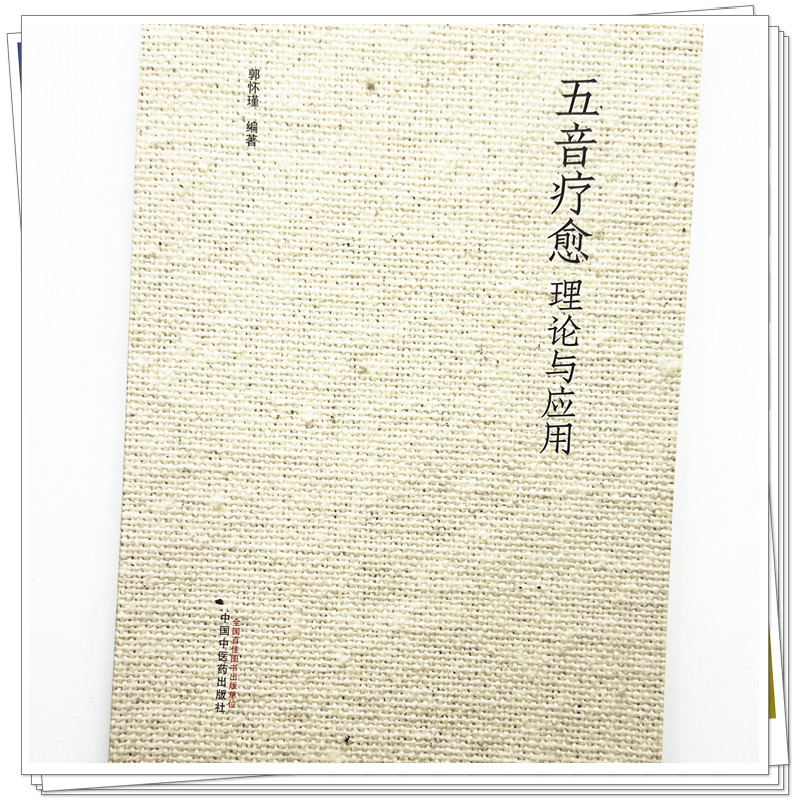 五音疗愈 理论与应用
郭怀瑾 编著
全国百佳图书出版单位
中国中医药出版社